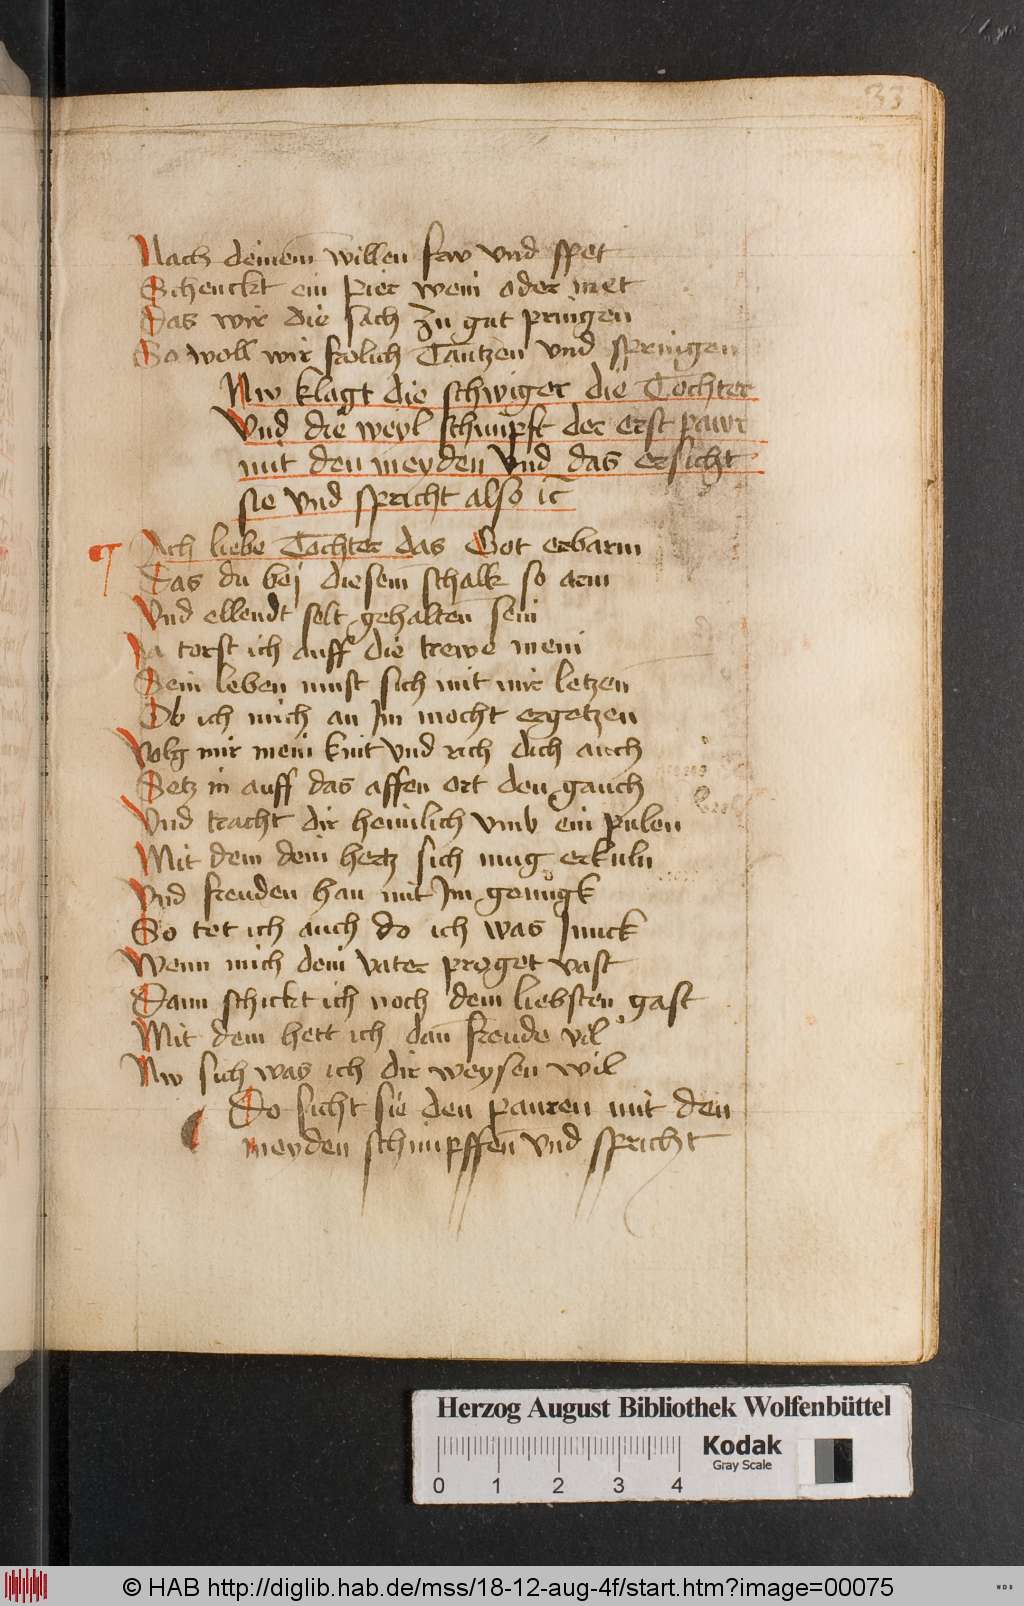 33
Nach deinem willen frw vnd spet
Schenckt ein pier wein oder met
Das wir die sach zu gut pringen
So woll wir frolich Tantzen vnd springen
Nw klagt die schwiger die Tochter
Vnd die weyl schimpft der erst pawr
mit den meyden Vnd das ersicht
sie Vnd spricht also
Ach liebe Tochter das Got erbarm
Das du bej diesem schalk so arm
Vnd ellendt solt gehalten sein
Ja torst ich auff die trewe mein
Sein leben must sich mit mir letzen
Ob ich mich an Im mocht ergetzen
Volg mir mein kint Vnd rich dich auch
Setz in auff das affen ort den gauch
Vnd tracht dir heimlich vmb ein pulen
Mit dem dein hertz sich mug erkuln
Vnd freuden han mit Im genugk
So tet ich auch do ich was Junck
Wenn mich dein Vater proget vast
Dann schickt ich noch dem liebsten gast
Mit dem hett ich dan freude vil
Nw sich was ich dir weysen wil
Do sicht sie den pauren mit den
meyden schimpffen Vnd spricht
Herzog August Bibliothek Wolfenbüttel
Kodak
Gray Scale
0 1 2 3 4
© HAB http://diglib.hab.de/mss/18-12-aug-4f/start.htm?image=00075